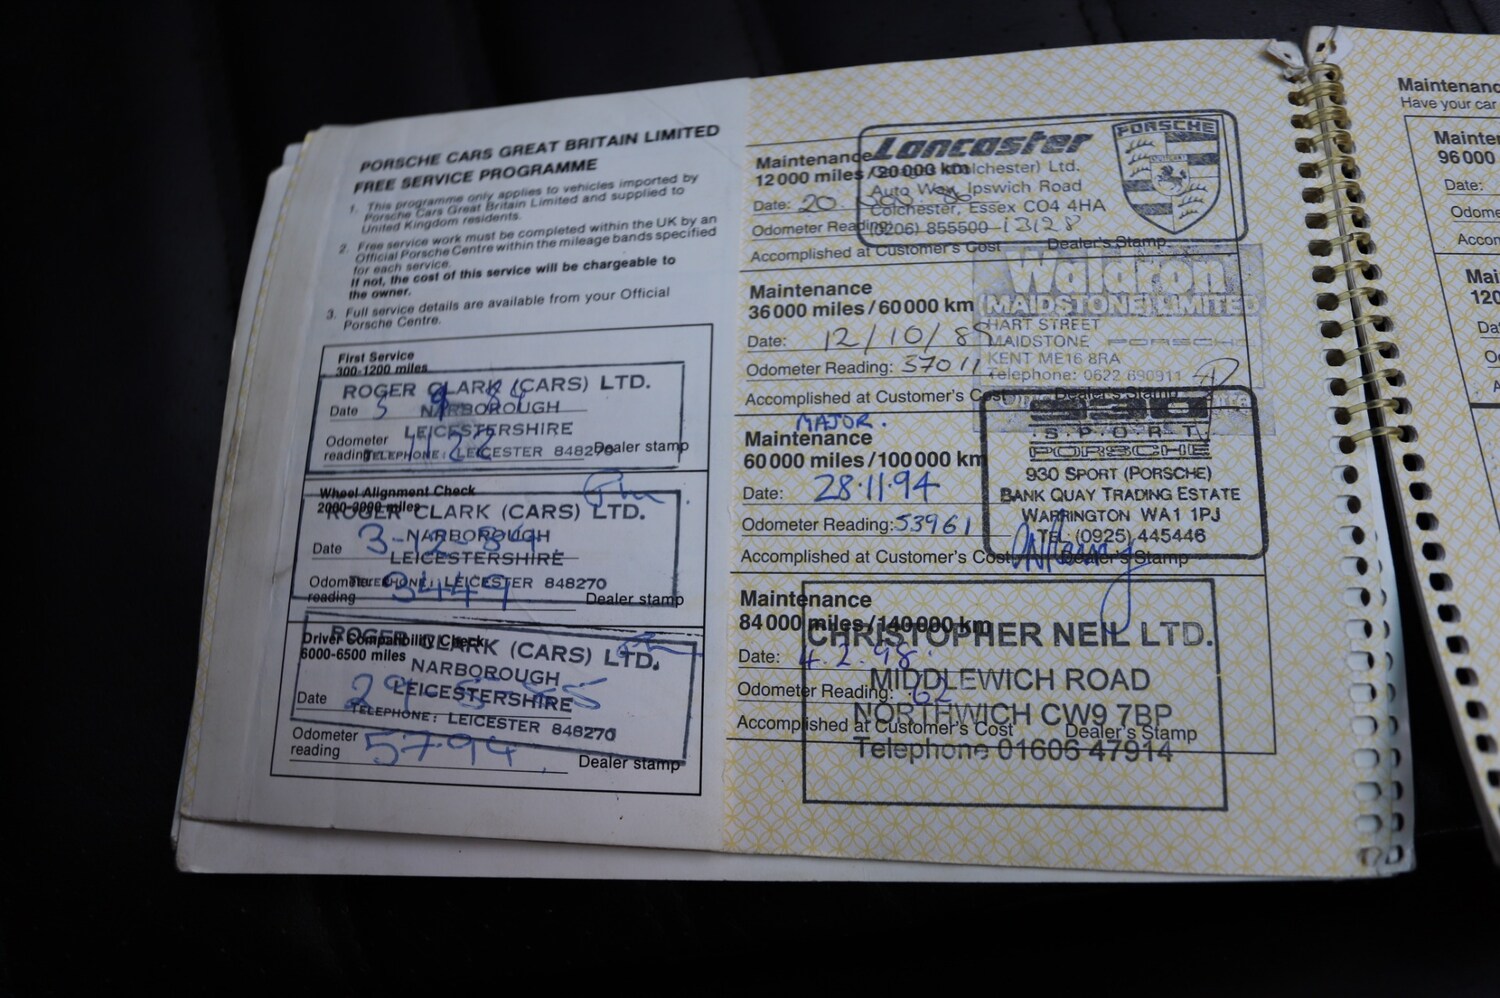 PORSCHE CARS GREAT BRITAIN LIMITED
FREE SERVICE PROGRAMME
1. This programme only applies to vehicles imported by
Porsche Cars Great Britain Limited and supplied to
United Kingdom residents.
2. Free service work must be completed within the UK by an
Official Porsche Centre within the mileage bands specified
for each service.
If not, the cost of this service will be chargeable to
the owner.
3. Full service details are available from your Official
Porsche Centre.
First Service
300-1200 miles
ROGER CLARK (CARS) LTD.
Date
NARBOROUGH
LEICESTERSHIRE
Odometer
reading
TELEPHONE: LEICESTER 848270
1122
Dealer stamp
Wheel Alignment Check
2000-3000 miles
ROGER CLARK (CARS) LTD.
NARBOROUGH
Date
LEICESTERSHIRE
Odometer
reading
TELEPHONE: LEICESTER 848270
3449
Dealer stamp
Driver Compatibility Check
6000-6500 miles
ROGER CLARK (CARS) LTD.
NARBOROUGH
Date
LEICESTERSHIRE
TELEPHONE: LEICESTER 848270
Odometer
reading
5794
Dealer stamp
Maintenance
12000 miles/20000 km
Lancaster
PORSCHE
(Colchester) Ltd.
Auto Way, Ipswich Road
Colchester, Essex CO4 4HA
(0206) 855500
Date: 20
Odometer Reading: 13128
Accomplished at Customer's Cost Dealer's Stamp
Maintenance
36000 miles/60000 km
Waldron
(MAIDSTONE) LIMITED
HART STREET
MAIDSTONE PORSCHE
KENT ME16 8RA
Telephone: 0622 690911
Date: 12/10/89
Odometer Reading: 37011
Accomplished at Customer's Cost Dealer's Stamp
MAJOR.
Maintenance
60000 miles/100000 km
930
SPORT
PORSCHE
930 SPORT (PORSCHE)
BANK QUAY TRADING ESTATE
WARRINGTON WA1 1PJ
TEL: (0925) 445446
Date: 28.11.94
Odometer Reading: 53961
Accomplished at Customer's Cost Dealer's Stamp
Maintenance
84000 miles/140000 km
CHRISTOPHER NEIL LTD.
MIDDLEWICH ROAD
NORTHWICH CW9 7BP
Telephone 01606 47914
Date: 4.2.98.
Odometer Reading: 62
Accomplished at Customer's Cost Dealer's Stamp
Maintenance
Have your car
96000
Date: